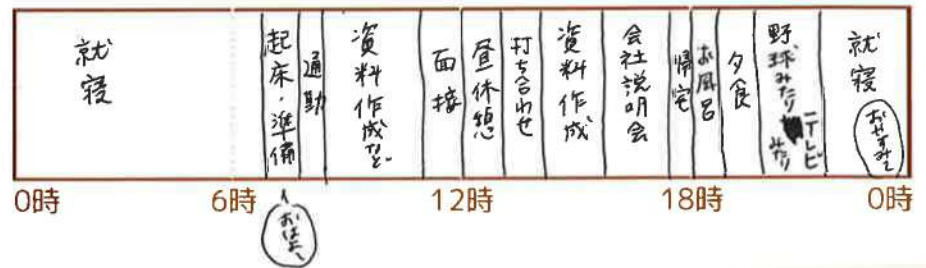 就寝
起床・準備
通勤
資料作成など
面接
昼休憩
打ち合わせ
資料作成
会社説明会
帰宅
お風呂
夕食
野球みたり
テレビみたり
就寝
おやすみ〜
0時
6時
12時
18時
0時
おはよ〜